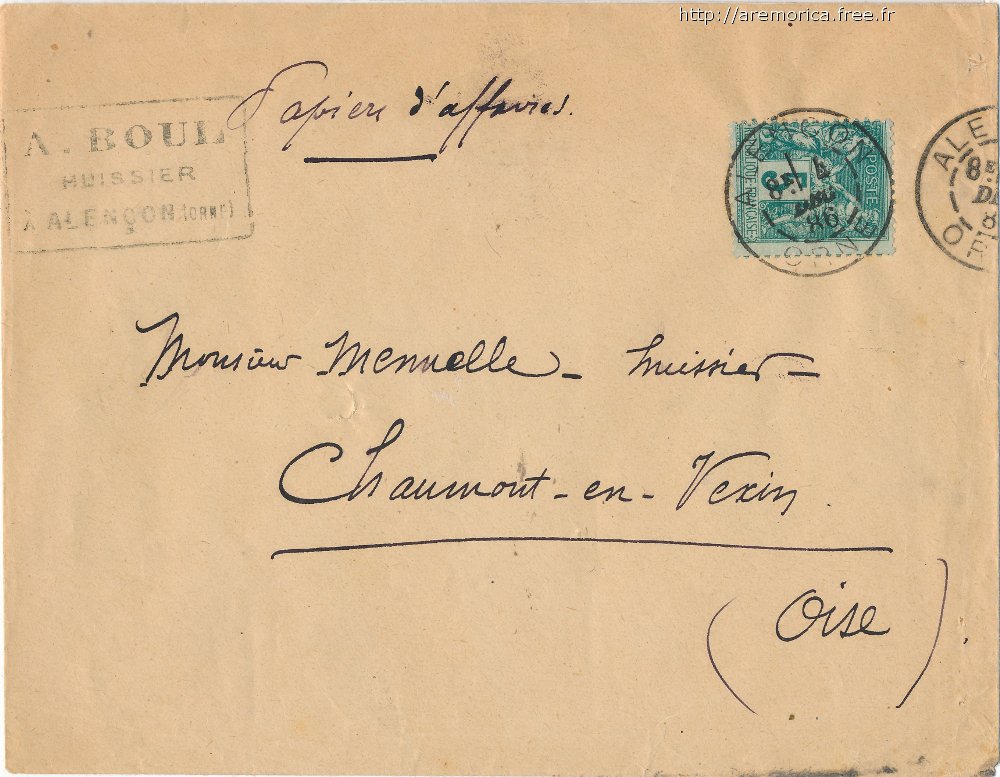 http://aremorica.free.fr
Papiers d'affaires.
A. BOUL
HUISSIER
À ALENÇON (ORNE)
ALENÇON
8E
4
DEC
86
ORNE
POSTE
REPUBLIQUE FRANCAISE
5
ALE
8E
DE
8
OR
Monsieur Mennelle - huissier =
Chaumont-en-Vexin
(Oise)